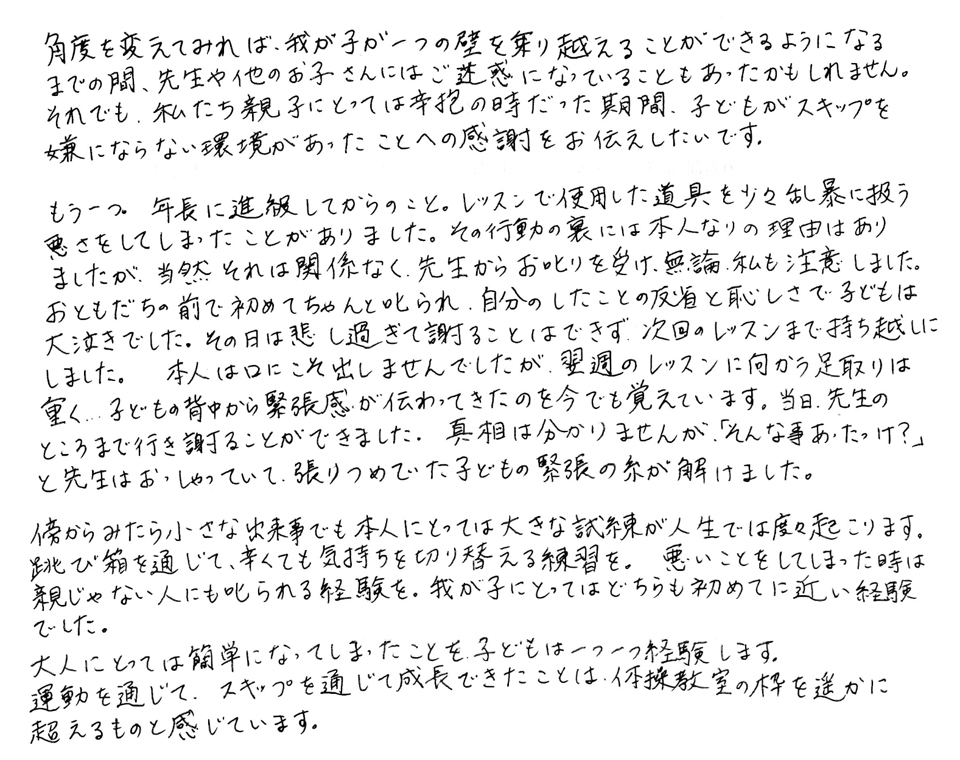 角度を変えてみれば、我が子が一つの壁を乗り越えることができるようになる
までの間、先生や他のお子さんにはご迷惑になっていることもあったかもしれません。
それでも、私たち親子にとっては辛抱の時だった期間、子どもがスキップを
嫌にならない環境があったことへの感謝をお伝えしたいです。
もう一つ。年長に進級してからのこと。レッスンで使用した道具を少々乱暴に扱う
悪さをしてしまったことがありました。その行動の裏には本人なりの理由はあり
ましたが、当然それは関係なく、先生からお叱りを受け、無論、私も注意しました。
おともだちの前で初めてちゃんと叱られ、自分のしたことの反省と恥しさで子どもは
大泣きでした。その日は悲し過ぎて謝ることはできず、次回のレッスンまで持ち越しに
しました。 本人は口にこそ出しませんでしたが、翌週のレッスンに向かう足取りは
重く…子どもの背中から緊張感が伝わってきたのを今でも覚えています。当日、先生の
ところまで行き謝ることができました。 真相は分かりませんが、「そんな事あったっけ？」
と先生はおっしゃっていて、張りつめていた子どもの緊張の糸が解けました。
傍からみたら小さな出来事でも本人にとっては大きな試練が人生では度々起こります。
跳び箱を通じて、辛くても気持ちを切り替える練習を。 悪いことをしてしまった時は
親じゃない人にも叱られる経験を。我が子にとってはどちらも初めてに近い経験
でした。
大人にとっては簡単になってしまったことを、子どもは一つ一つ経験します。
運動を通じて、スキップを通じて成長できたことは、体操教室の枠を遥かに
超えるものと感じています。